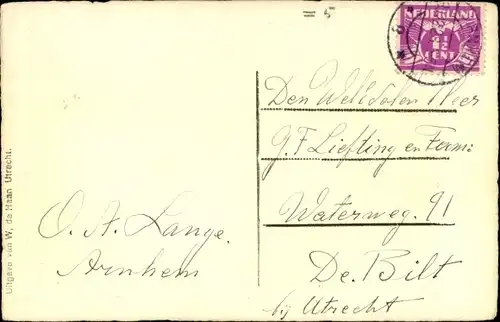 = 5
NEDERLAND
2 1/2
CENT
Den WelEdelen Heer
G. F. Liefting en Fam:
Waterweg. 91
De. Bilt
bij Utrecht
O. A. Lange.
Arnhem
Uitgave van W. de Haan, Utrecht.